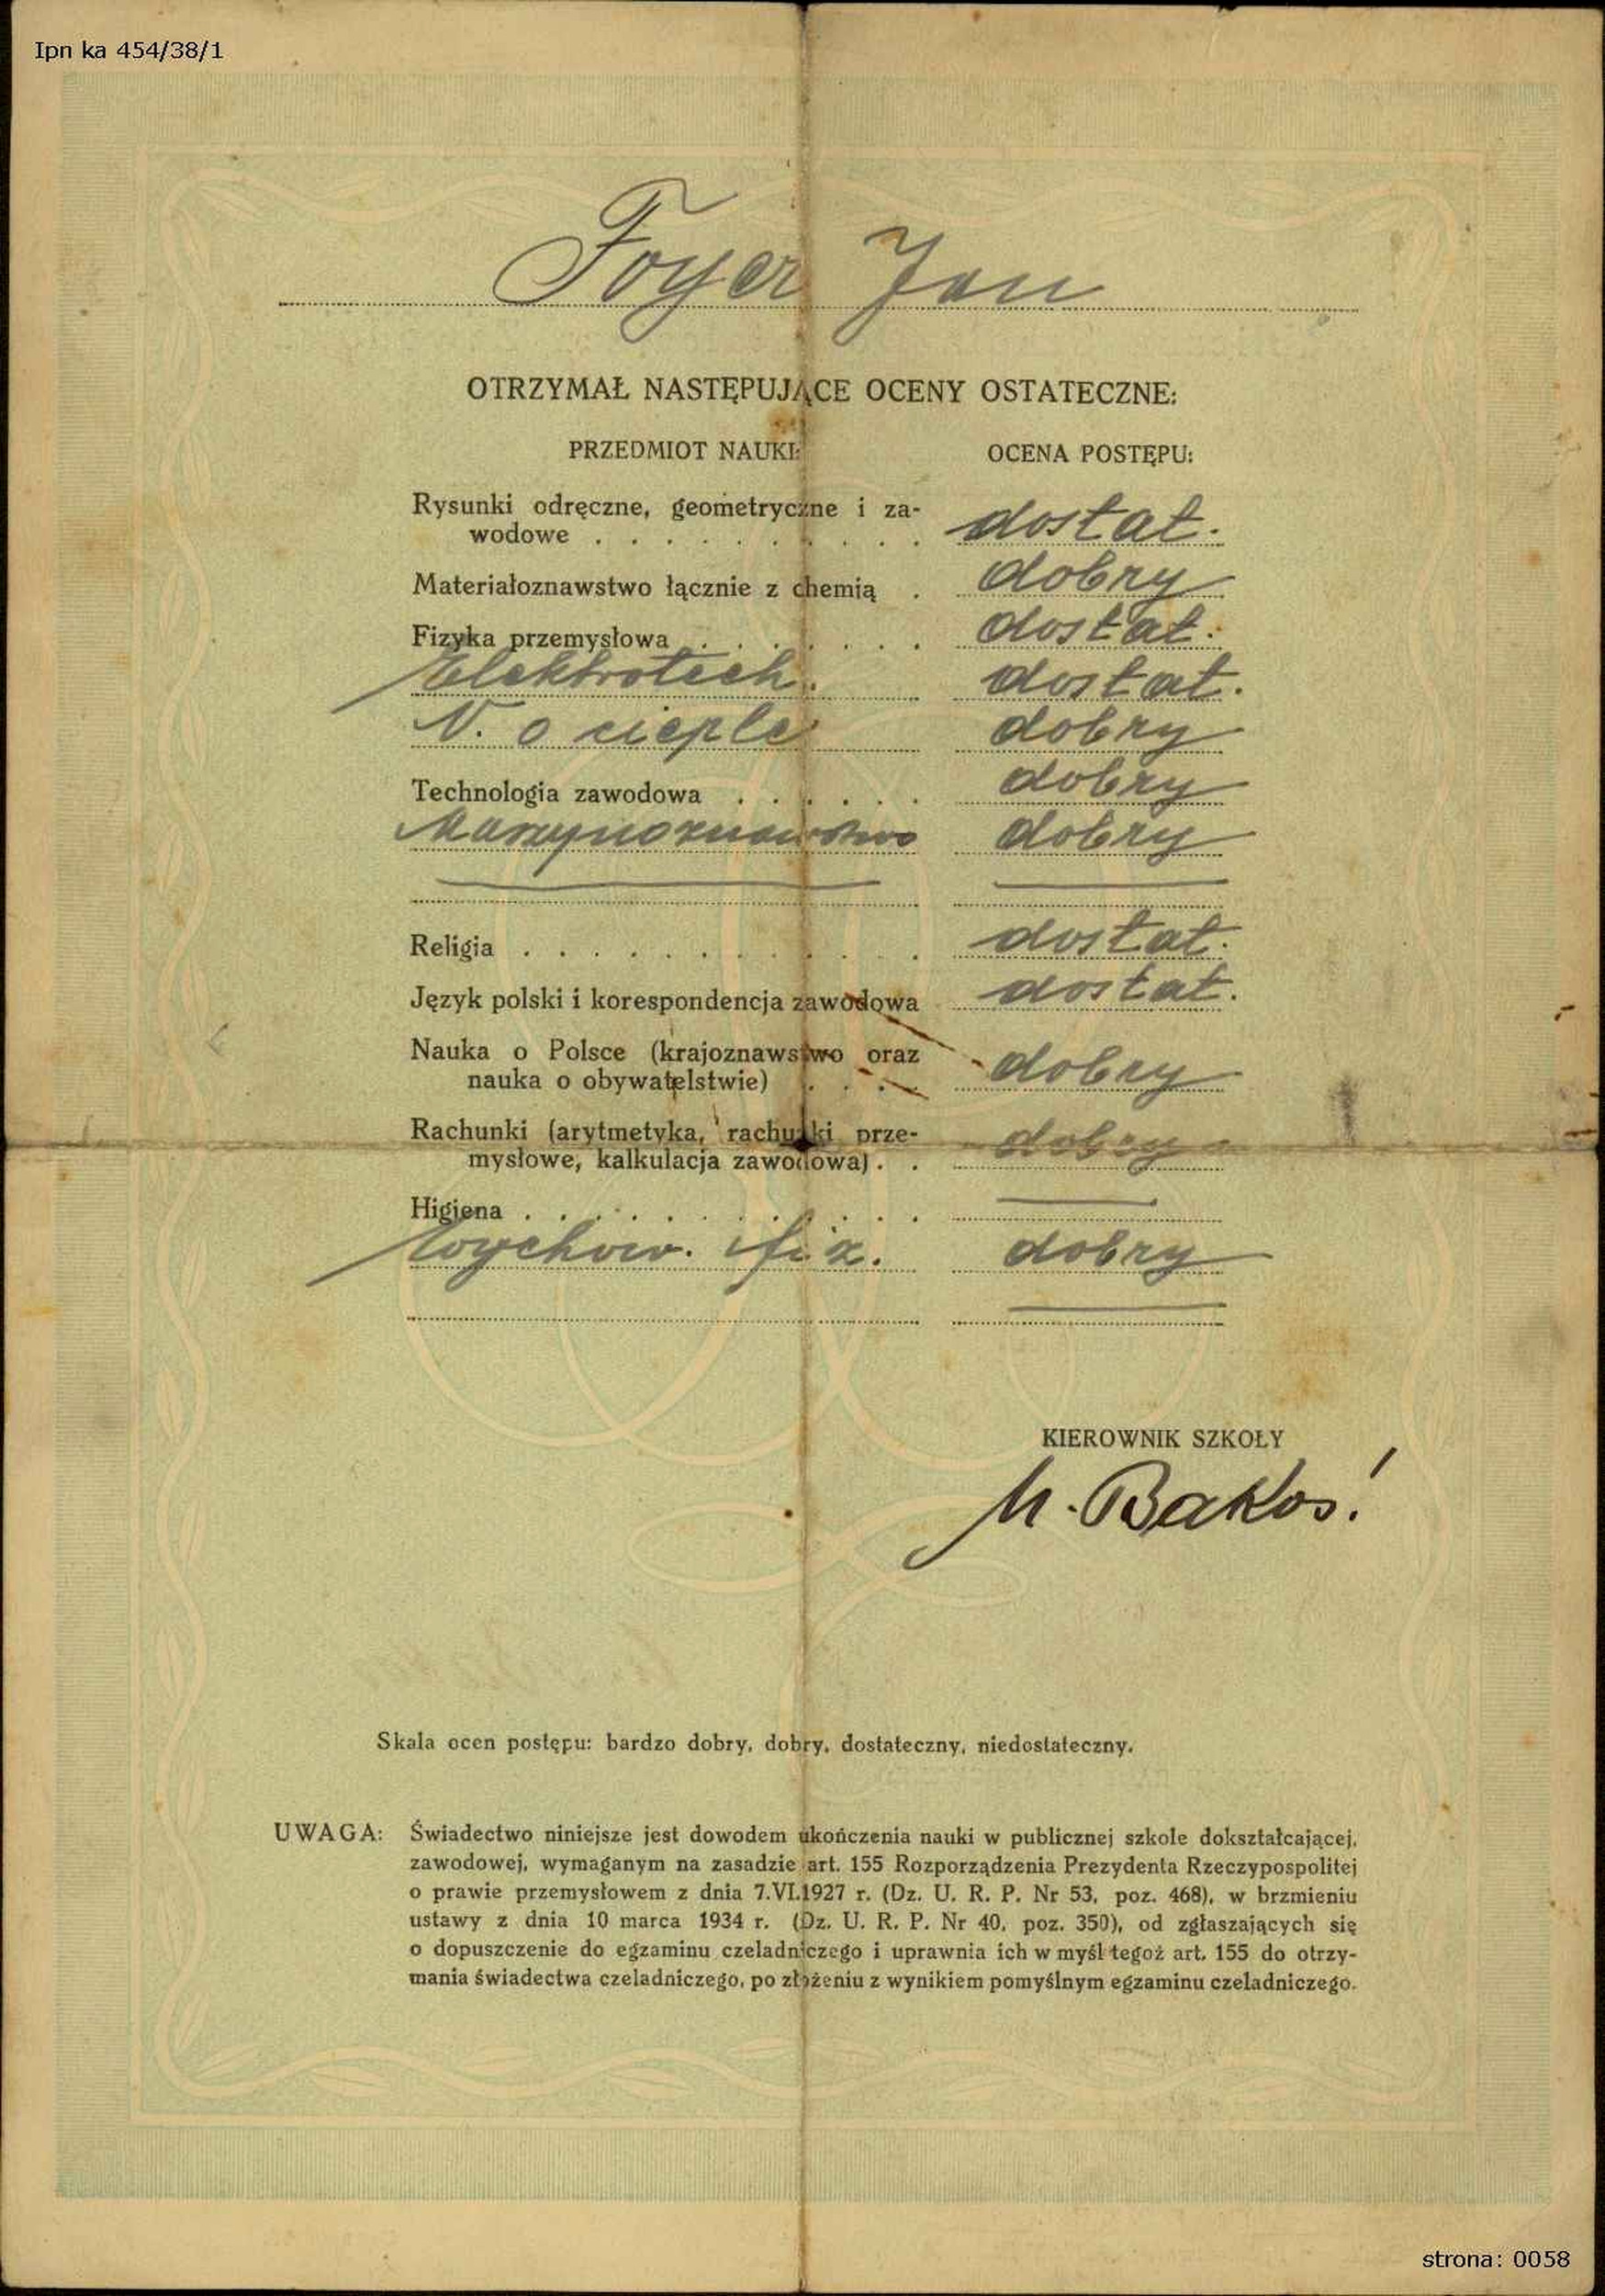 Ipn ka 454/38/1
Foyer Jan
OTRZYMAŁ NASTĘPUJĄCE OCENY OSTATECZNE:
PRZEDMIOT NAUKI: OCENA POSTĘPU:
Rysunki odręczne, geometryczne i za-
wodowe . . . . . . . . . . dostat.
Materiałoznawstwo łącznie z chemią . dobry
Fizyka przemysłowa . . . . . . . dostat.
Elektrotech. dostat.
N. o cieple dobry
Technologia zawodowa . . . . . . dobry
Maszynoznawstwo dobry
Religia . . . . . . . . . . . . dostat.
Język polski i korespondencja zawodowa dostat.
Nauka o Polsce (krajoznawstwo oraz
nauka o obywatelstwie) . . . . dobry
Rachunki (arytmetyka, rachunki prze-
mysłowe, kalkulacja zawodowa) . . dobry
Higiena . . . . . . . . . . . .
Wychow. fiz. dobry
KIEROWNIK SZKOŁY
M. Bakoś
Skala ocen postępu: bardzo dobry, dobry, dostateczny, niedostateczny.
UWAGA: Świadectwo niniejsze jest dowodem ukończenia nauki w publicznej szkole dokształcającej,
zawodowej, wymaganym na zasadzie art. 155 Rozporządzenia Prezydenta Rzeczypospolitej
o prawie przemysłowem z dnia 7.VI.1927 r. (Dz. U. R. P. Nr 53, poz. 468), w brzmieniu
ustawy z dnia 10 marca 1934 r. (Dz. U. R. P. Nr 40, poz. 350), od zgłaszających się
o dopuszczenie do egzaminu czeladniczego i uprawnia ich w myśl tegoż art. 155 do otrzy-
mania świadectwa czeladniczego, po złożeniu z wynikiem pomyślnym egzaminu czeladniczego.
strona: 0058